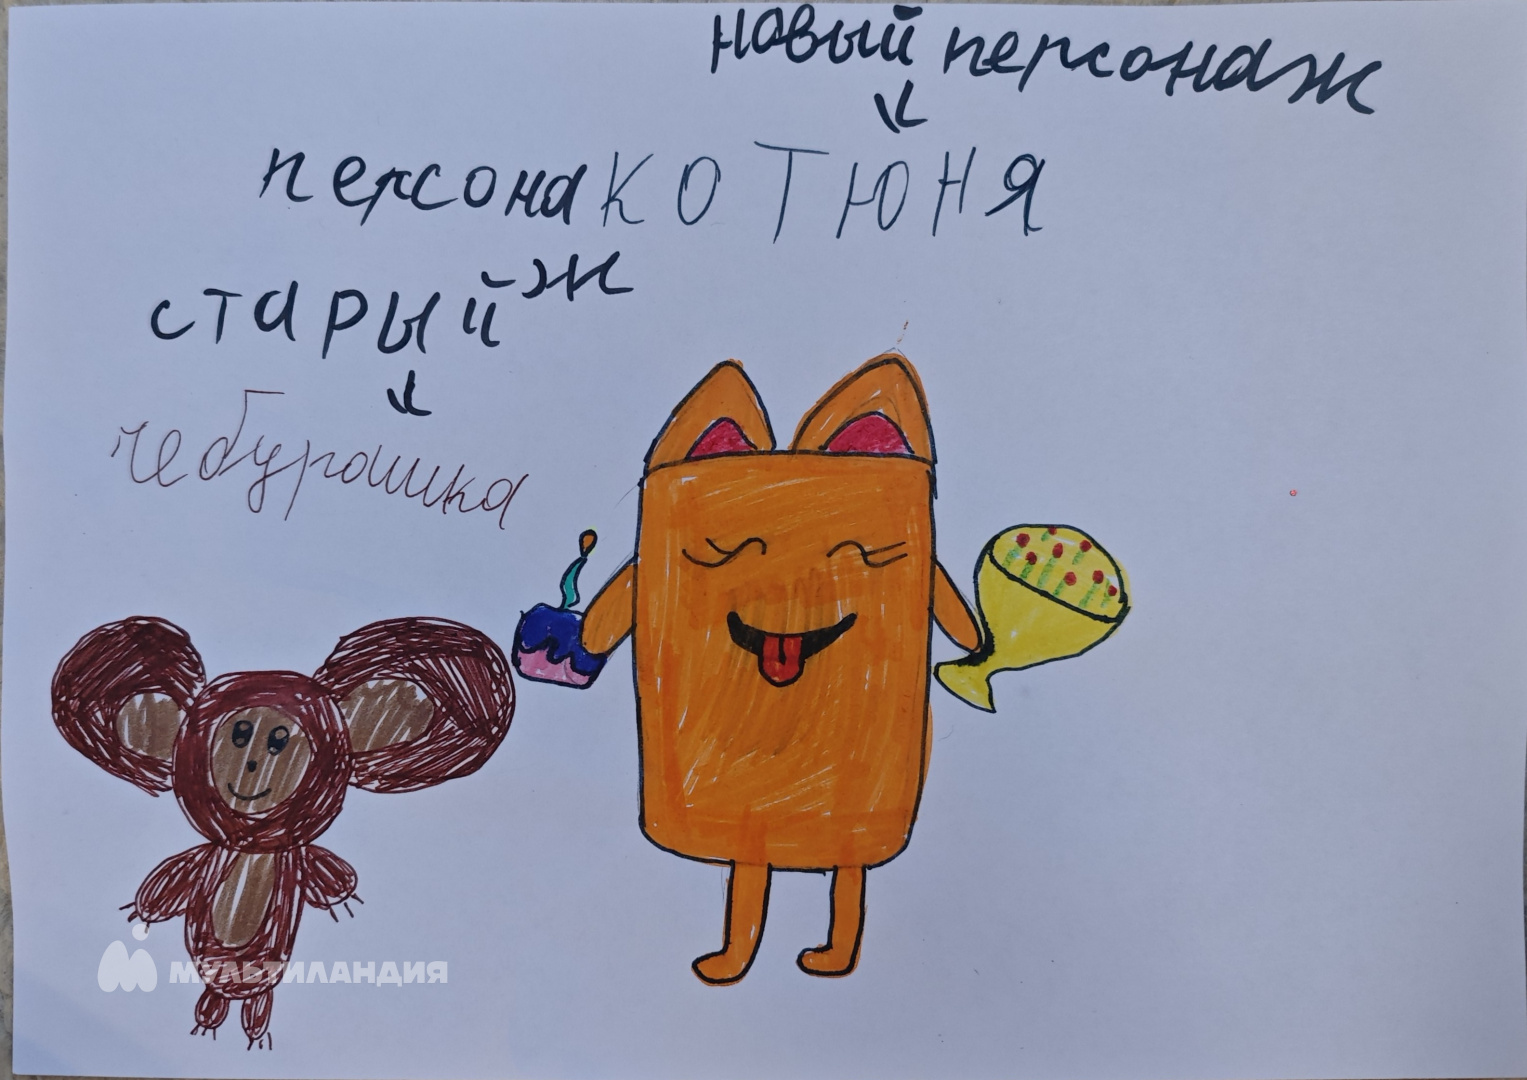 новый персонаж
КОТЮНЯ
старый
персонаж
чебурашка
МУЛЬТИЛАНДИЯ